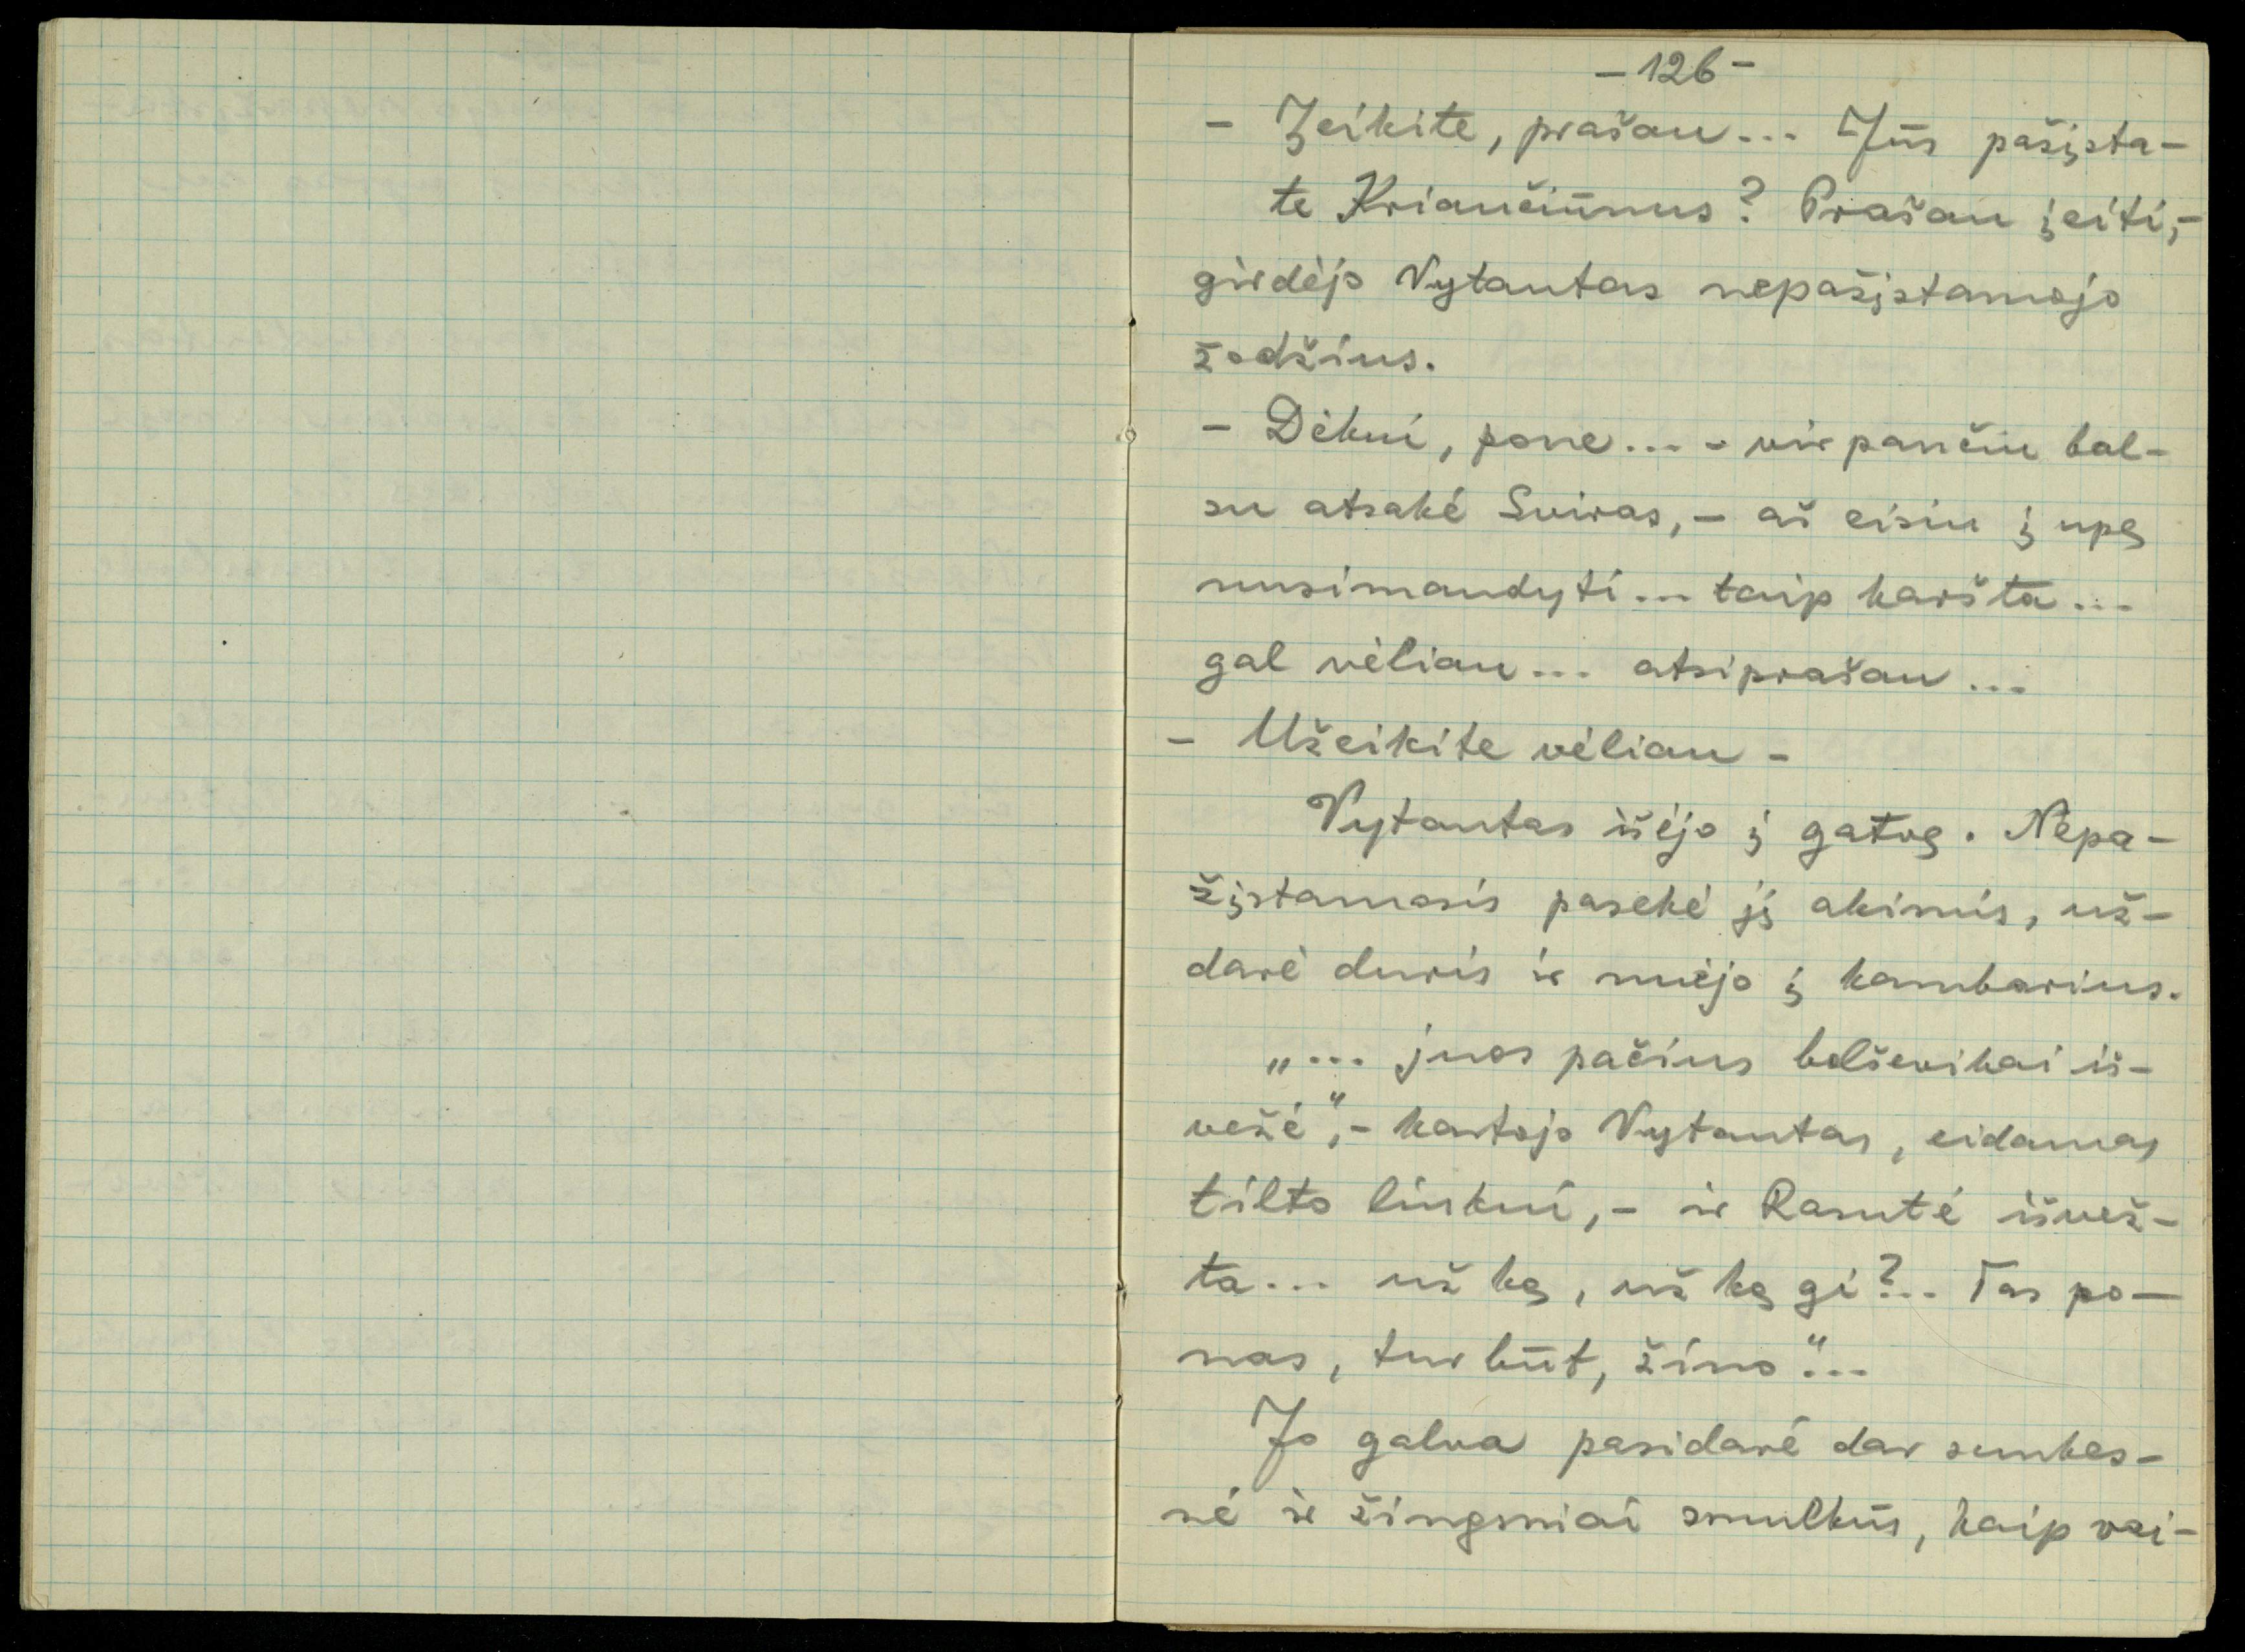 - 126 -
- Įeikite, prašau... Jūs pažįsta-
te Kriaučiūnus? Prašau įeiti, -
girdėjo Vytautas nepažįstamojo
žodžius.
- Dėkui, pone... - virpančiu bal-
su atsakė Sviras, - aš eisiu į upę
nusimaudyti... taip karšta...
gal vėliau... atsiprašau...
- Užeikite vėliau -
Vytautas išėjo į gatvę. Nepa-
žįstamasis pasekė jį akimis, už-
darė duris ir nuėjo į kambarius.
„... juos pačius bolševikai iš-
vežė“, - kartojo Vytautas, eidamas
tilto linkui, - ir Ramutė išvež-
ta... už ką, už ką gi?... Tas po-
nas, turbūt, žino“...
Jo galva pasidarė dar sunkes-
nė ir žingsniai smulkūs, kaip vai-